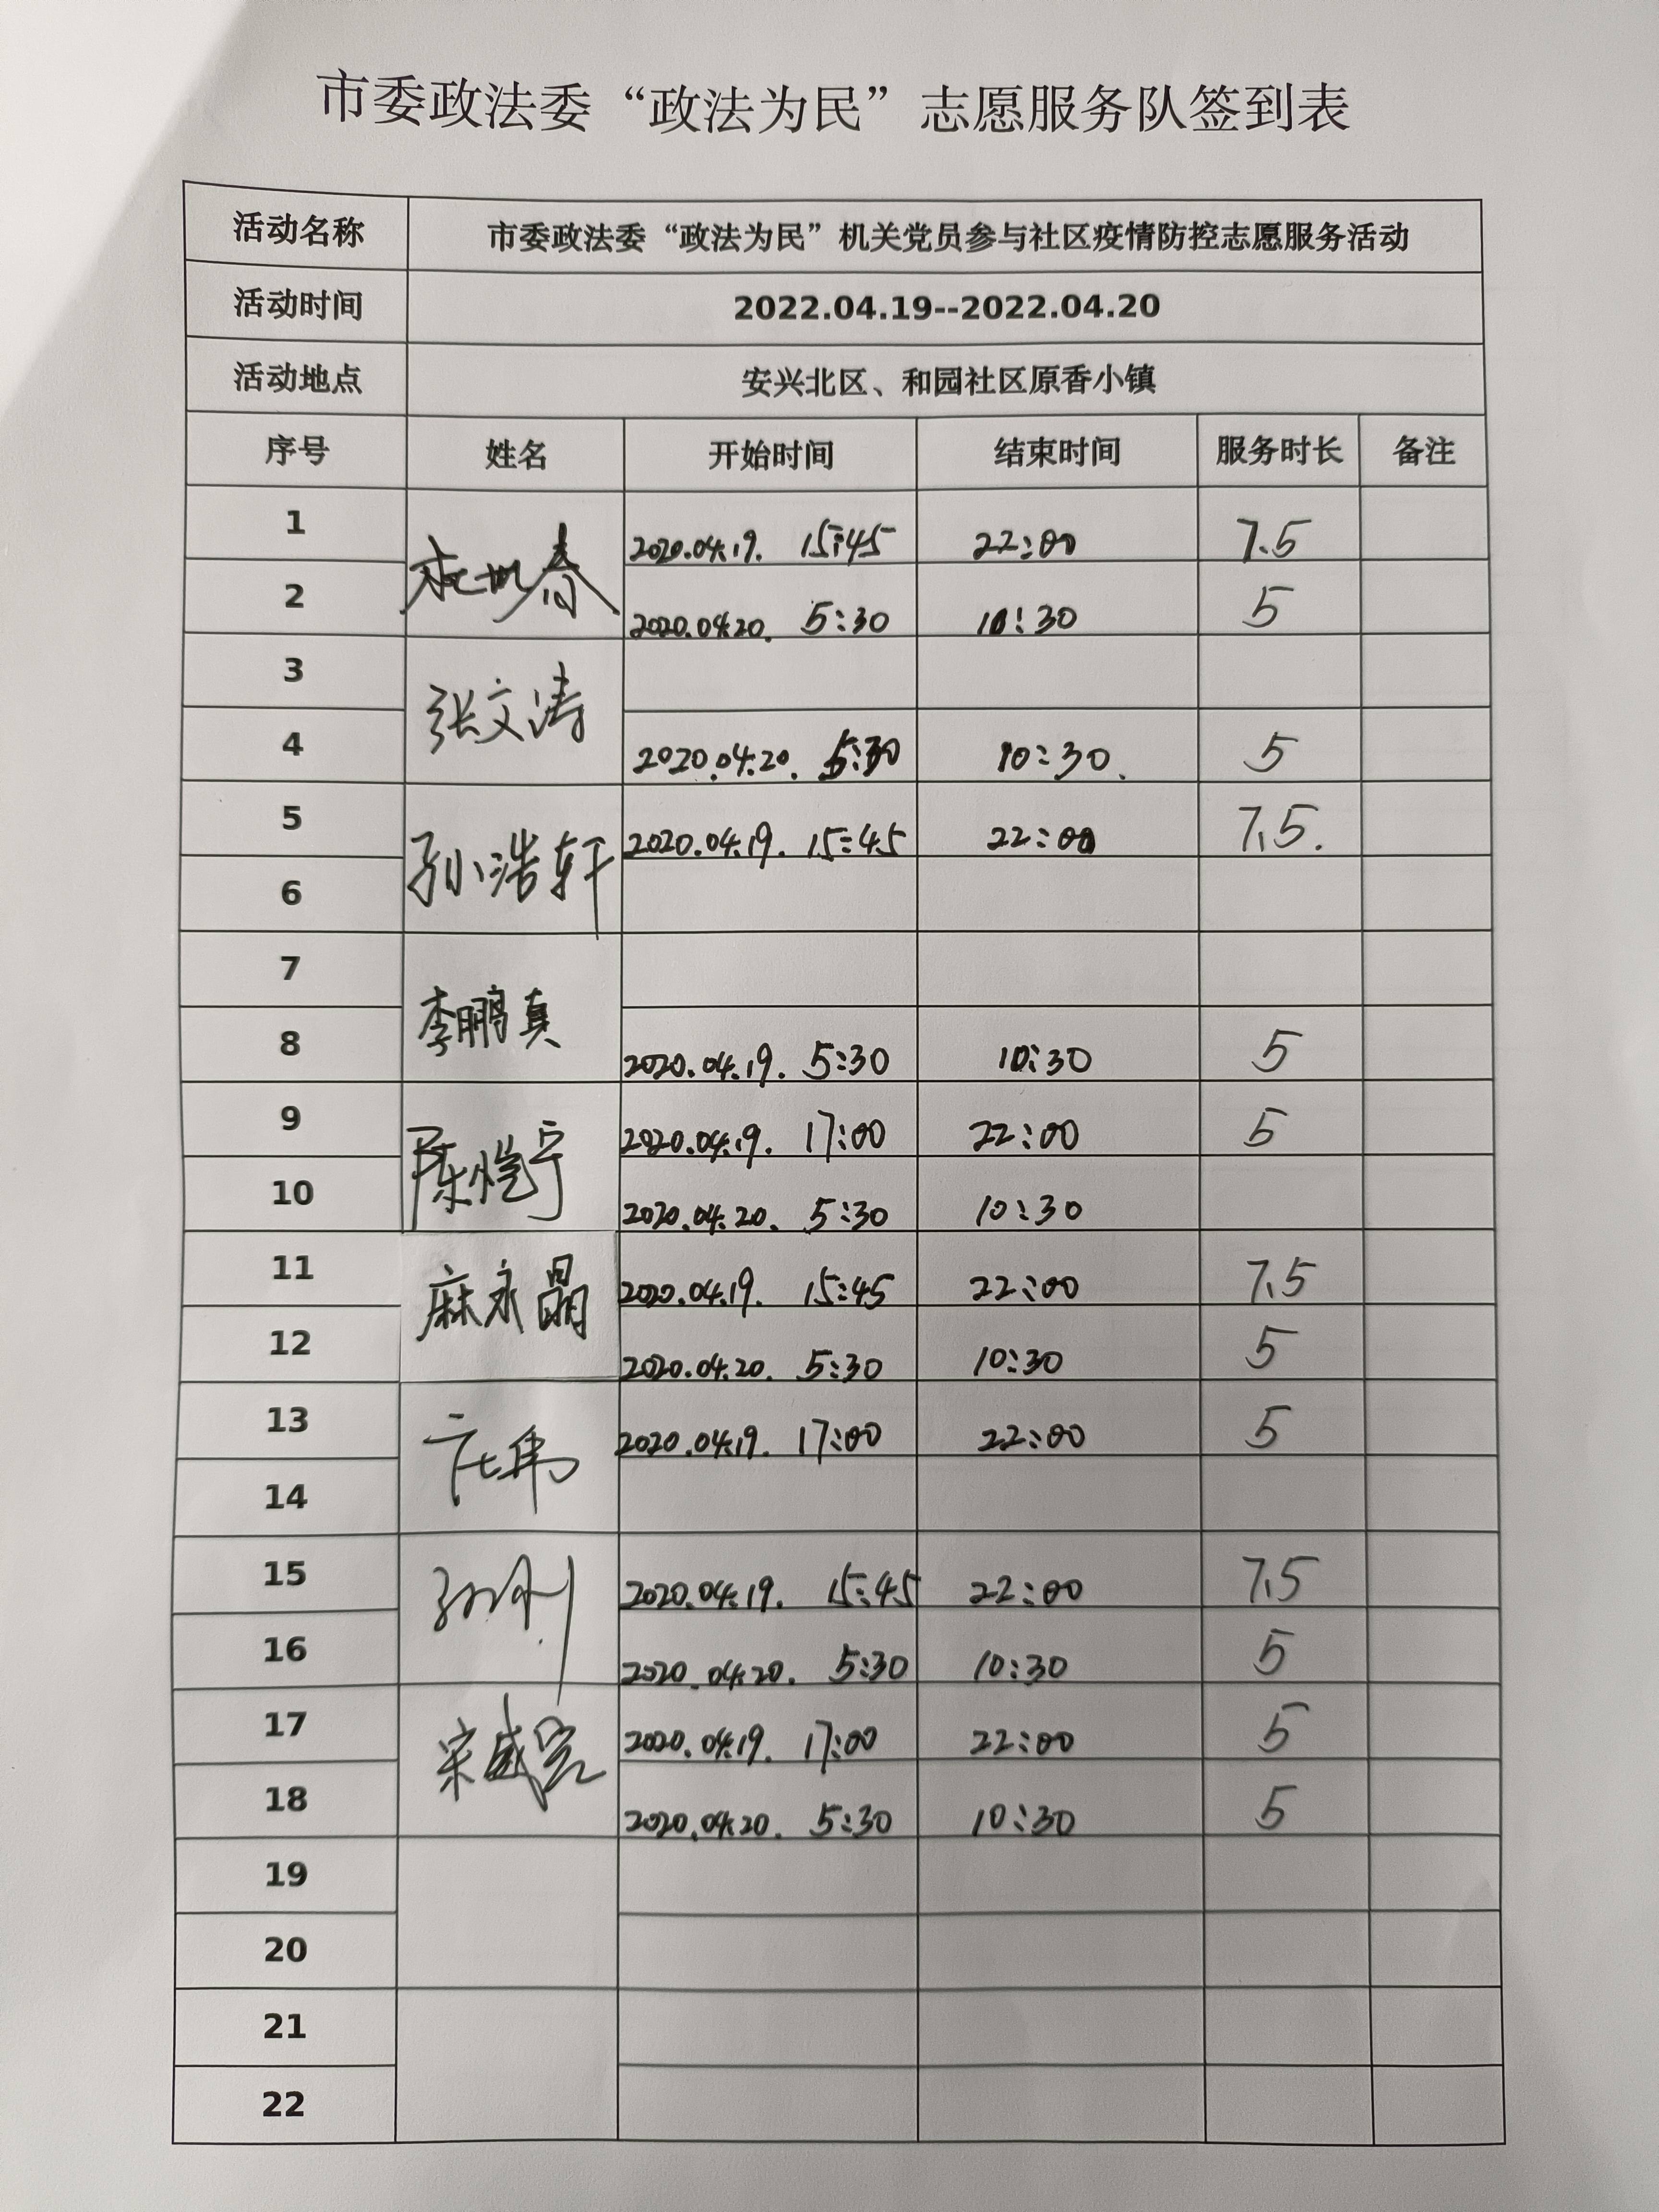 市委政法委“政法为民”志愿服务队签到表
活动名称 市委政法委“政法为民”机关党员参与社区疫情防控志愿服务活动
活动时间 2022.04.19--2022.04.20
活动地点 安兴北区、和园社区原香小镇
序号 姓名 开始时间 结束时间 服务时长 备注
1 2020.04.19. 15:45 22:00 7.5
2 2020.04.20. 5:30 10:30 5
3 张文涛
4 2020.04.20. 5:30 10:30. 5
5 孙浩轩 2020.04.19. 15:45 22:00 7.5.
6
7 李鹏真
8 2020.04.19. 5:30 10:30 5
9 陈恺宁 2020.04.19. 17:00 22:00 5
10 2020.04.20. 5:30 10:30
11 麻永晶 2020.04.19. 15:45 22:00 7.5
12 2020.04.20. 5:30 10:30 5
13 2020.04.19. 17:00 22:00 5
14
15 2020.04.19. 15:45 22:00 7.5
16 2020.04.20. 5:30 10:30 5
17 2020.04.19. 17:00 22:00 5
18 2020.04.20. 5:30 10:30 5
19
20
21
22